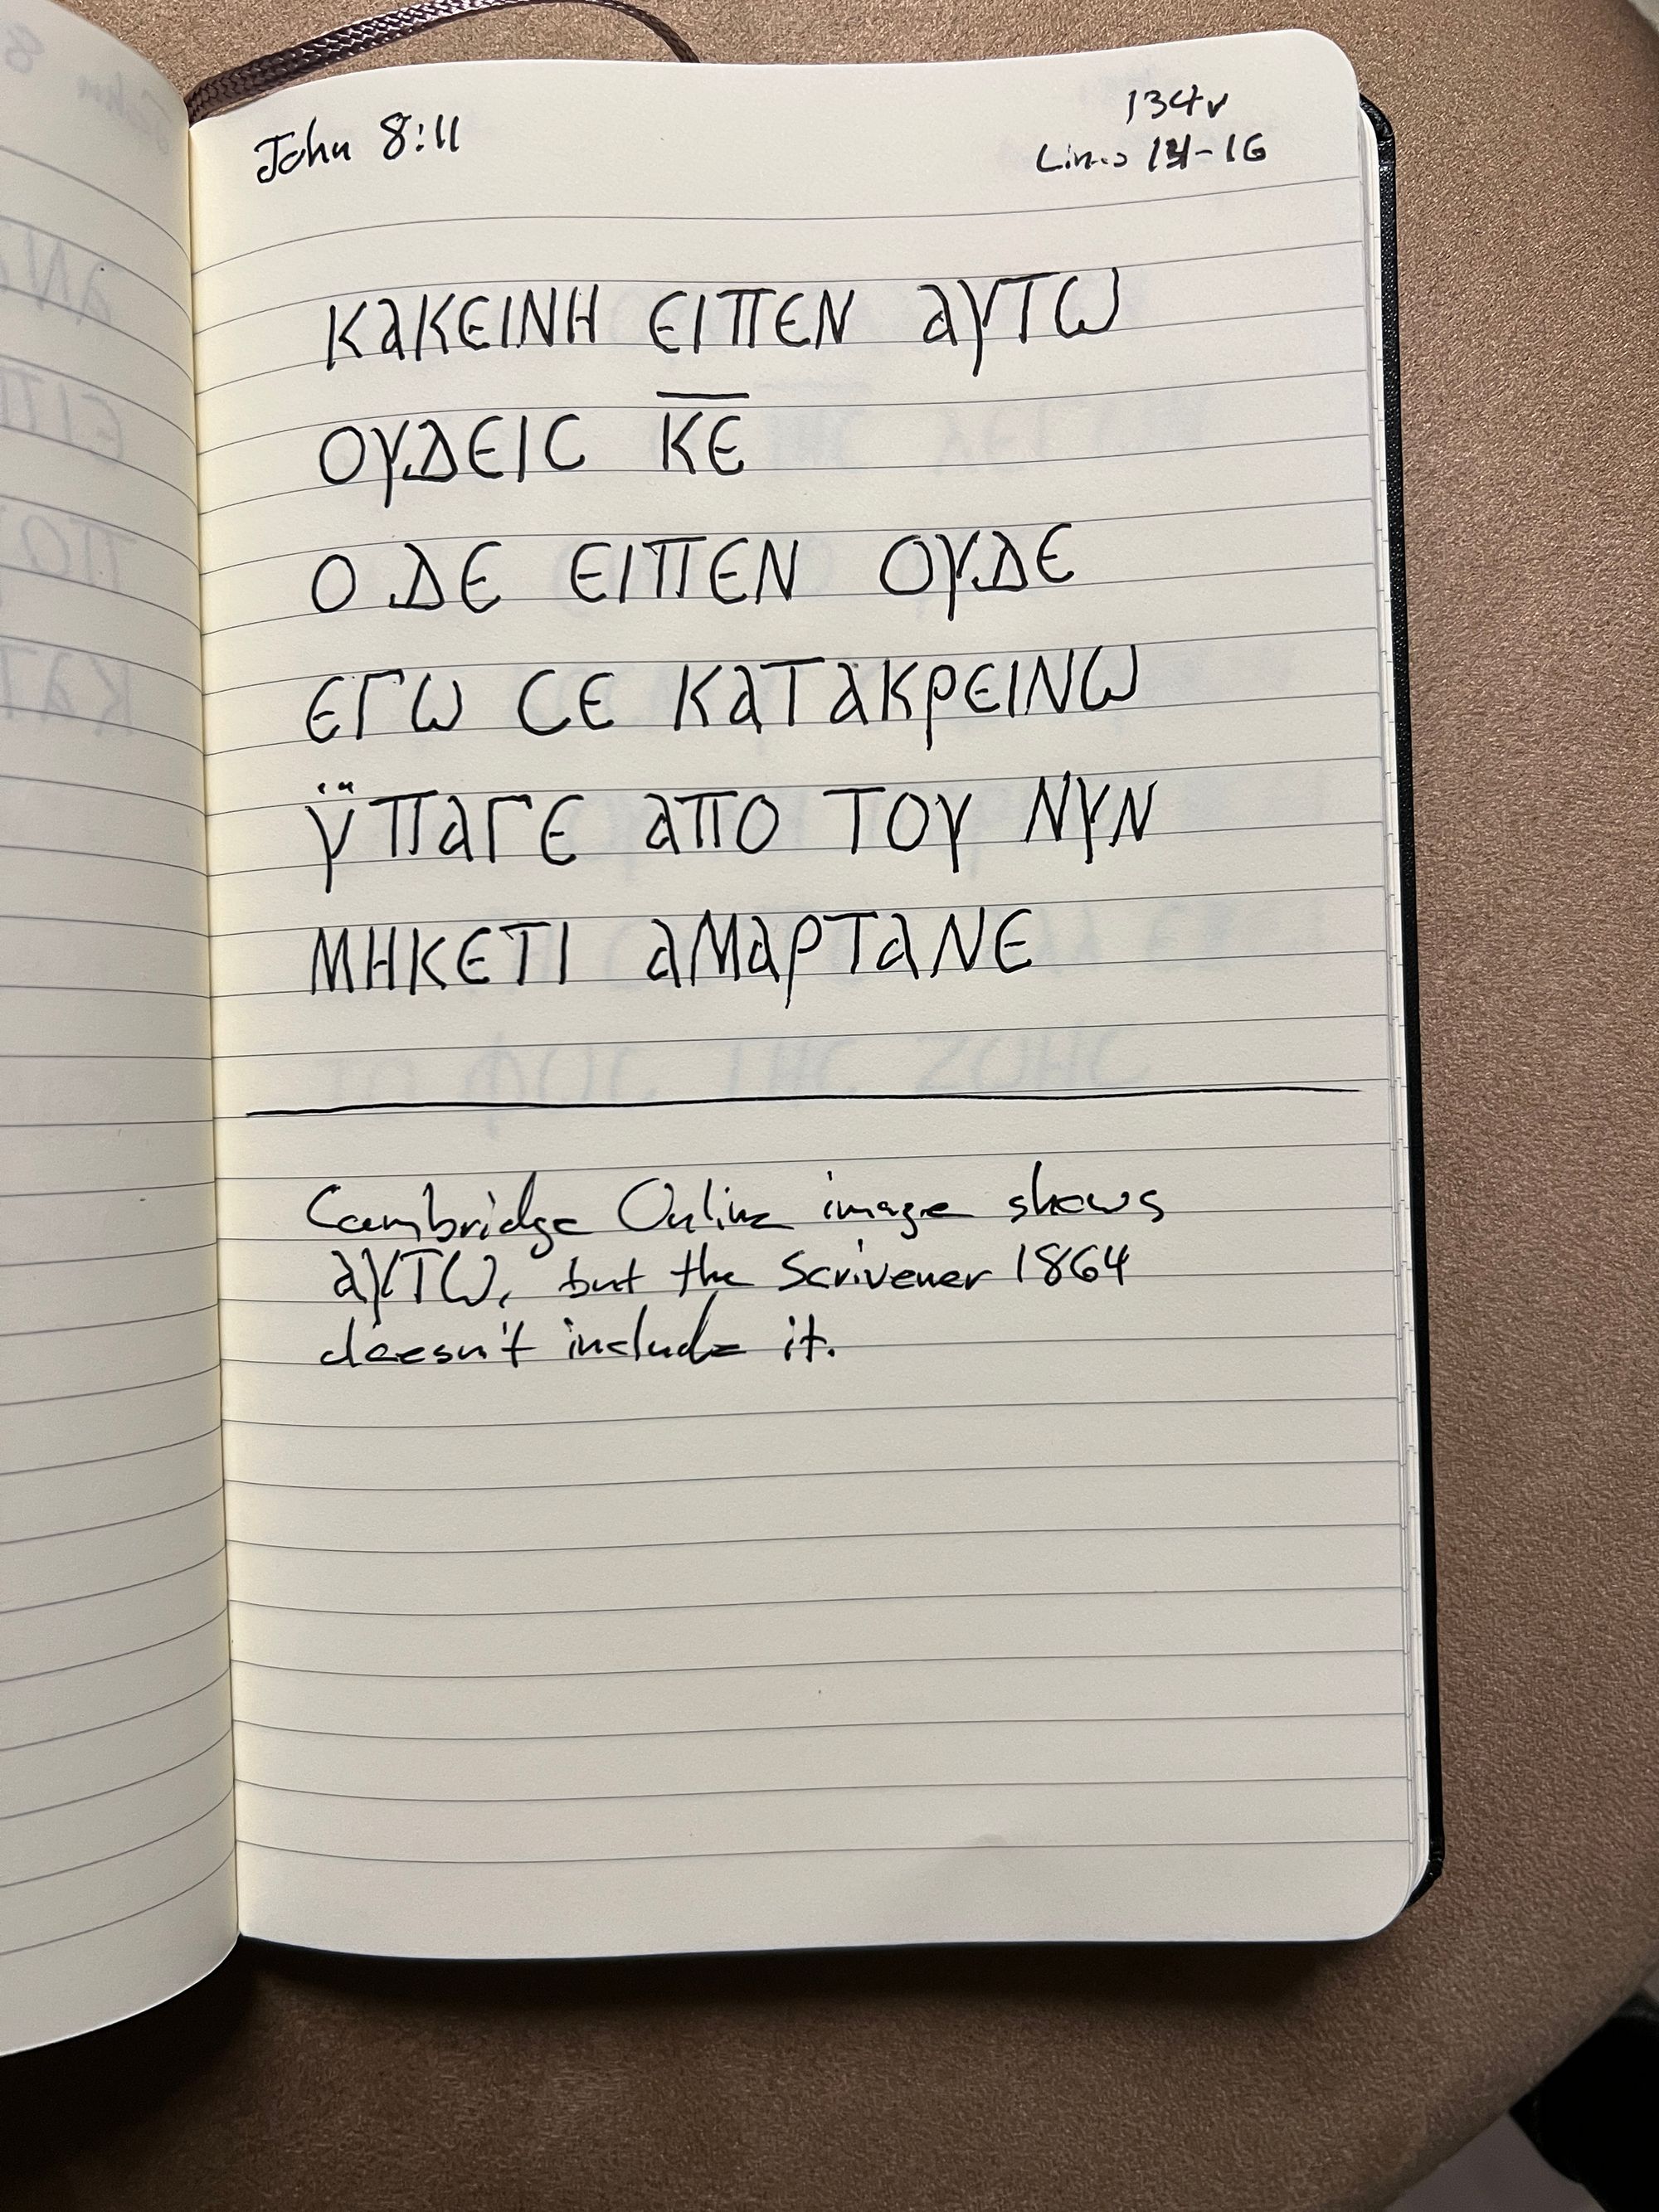 John 8:11
134v
Lines 14-16
ΚΑΚΕΙΝΗ ΕΙΠΕΝ ΑΥΤΩ
ΟΥΔΕΙϹ Κ̅Ε̅
Ο ΔΕ ΕΙΠΕΝ ΟΥΔΕ
ΕΓΩ ϹΕ ΚΑΤΑΚΡΕΙΝΩ
ΫΠΑΓΕ ΑΠΟ ΤΟΥ ΝΥΝ
ΜΗΚΕΤΙ ΑΜΑΡΤΑΝΕ
Cambridge Online image shows
ΑΥΤΩ, but the Scrivener 1864
doesn't include it.